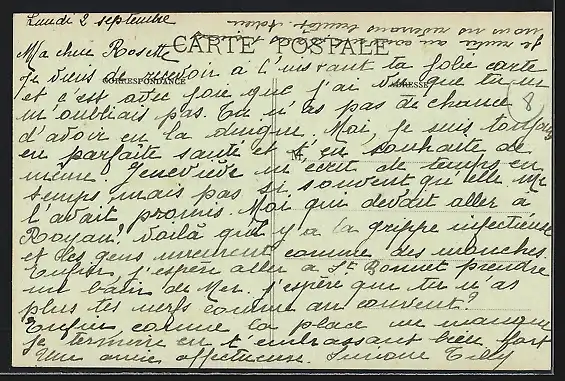 Lundi 2 septembre
CARTE POSTALE
CORRESPONDANCE
ADRESSE
8
M
Ma chère Rosette
Je viens de recevoir à l'instant ta jolie carte
et c'est avec joie que j'ai vu que tu ne
m'oubliais pas. Tu n'as pas de chance
d'avoir eu la dingue. Moi, je suis toujours
en parfaite santé et t'en souhaite de
même. Geneviève m'écrit de temps en
temps mais pas si souvent qu'elle me
l'avait promis. Moi qui devait aller à
Royan! Voilà qu'il y a la grippe infectieuse
et les gens meurent comme des mouches.
Enfin, j'espère aller à St Bonnet prendre
un bain de Mer. J'espère que tu n'as
plus tes nerfs comme au couvent?
Enfin, comme la place me manque
je termine en t'embrassant bien fort
Une amie affectueuse. Simone Tilly
Je rentre au couvent
nous nous reverrons bientôt. Adieu